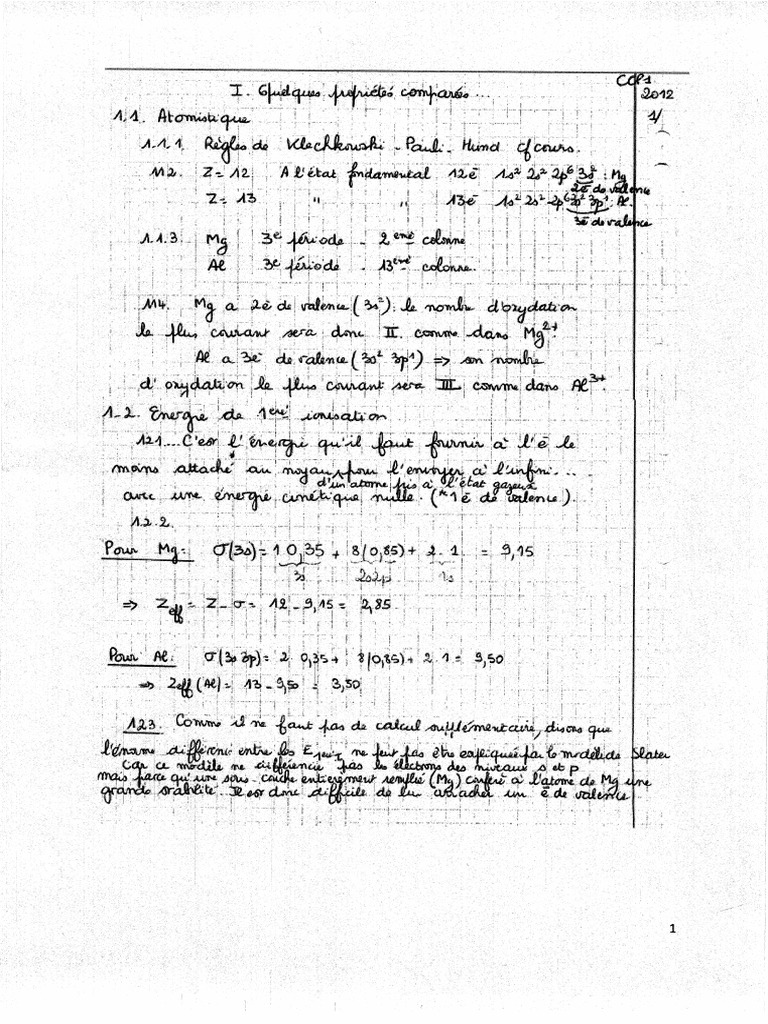 CCP1
I. Quelques propriétés comparées...
2012
1.1. Atomistique
1/
1.1.1. Règles de Klechkowski - Pauli - Hund cf cours.
112. Z = 12 A l'état fondamental 12ē 1s² 2s² 2p⁶ 3s² : Mg
2ē de valence
Z = 13 " " 13ē 1s² 2s² 2p⁶ 3s² 3p¹ : Al.
3ē de valence
1.1.3. Mg 3e période - 2eme colonne
Al 3e période - 13eme colonne.
114. Mg a 2ē de valence (3s²) : le nombre d'oxydation
le plus courant sera donc II. comme dans Mg²⁺.
Al a 3ē de valence (3s² 3p¹) => son nombre
d'oxydation le plus courant sera III comme dans Al³⁺.
1-2. Energie de 1ere ionisation
121... C'est l'énergie qu'il faut fournir à l'ē le
moins attaché* au noyau, pour l'envoyer à l'infini...
d'un atome pris à l'état gazeux
avec une énergie cinétique nulle. (*1ē de valence).
1.2.2.
Pour Mg: σ(3s) = 1 0,35 + 8(0,85) + 2. 1. = 9,15
3s 2s2p 1s
=> Zeff = Z - σ = 12 - 9,15 = 2,85.
Pour Al: σ(3s 3p) = 2. 0,35 + 8(0,85) + 2. 1 = 9,50
=> Zeff (Al) = 13 - 9,50 = 3,50
123. Comme il ne faut pas de calcul supplémentaire, disons que
entre les ne peut pas être expliquée par le modèle de Slater
Car ce modèle ne différencie pas les électrons des niveaux s et p
mais parce qu'une sous-couche entièrement remplie (Mg) confère à l'atome de Mg une
grande stabilité. Il est donc difficile de lui arracher un ē de valence
1